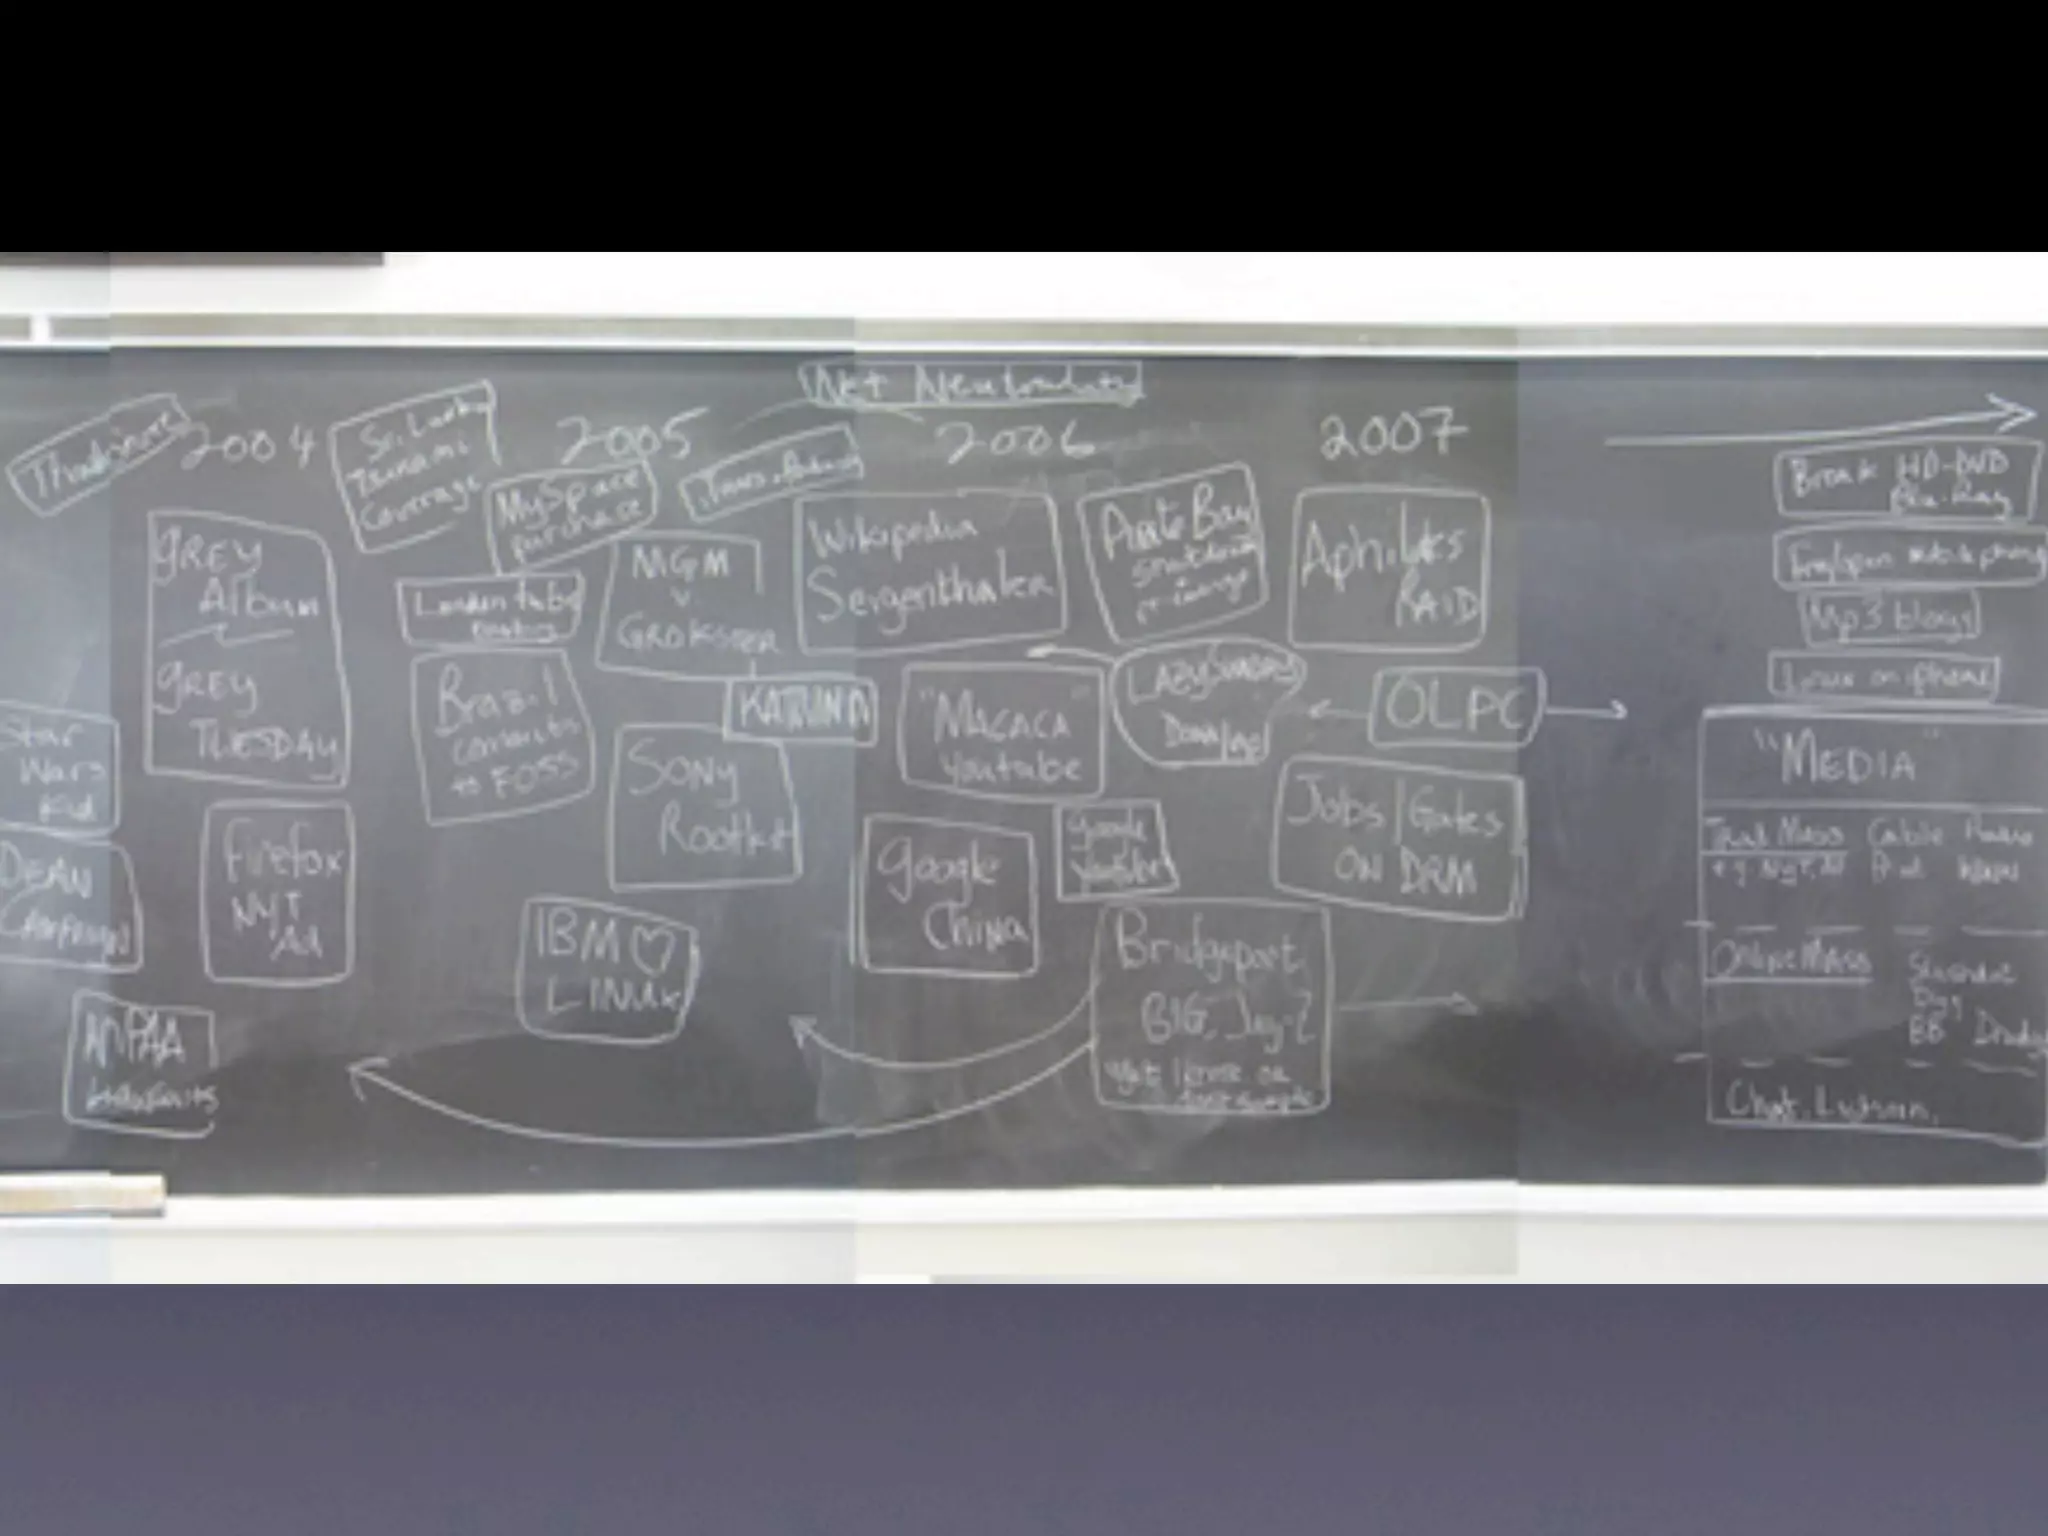 Net Neutrality
2004
2005
2006
2007
Sri Lanka
Tsunami
Coverage
MySpace
purchase
GREY
Album
GREY
TUESDAY
London tube
MGM
v.
GROKSTER
Wikipedia
Sergenthaler
Pirate Bay
Aphilltes
RAID
Break HD-DVD
Blu-Ray
Mp3 blogs
Linux on iphone
Star
Wars
Kid
Brazil
commits
to FOSS
KATRINA
"MACACA"
Youtube
LAZY SUNDAY
OLPC
"MEDIA"
SONY
Rootkit
Jobs/Gates
ON DRM
DEAN
CAMPAIGN
Firefox
NYT
Ad
Google
China
Google
Youtube
Trad Mass Cable Radio
IBM ♡
LINUX
Bridgeport,
BIG, Jay-Z
Online MASS
Digg
BB
MPAA
Lawsuits
Chat,